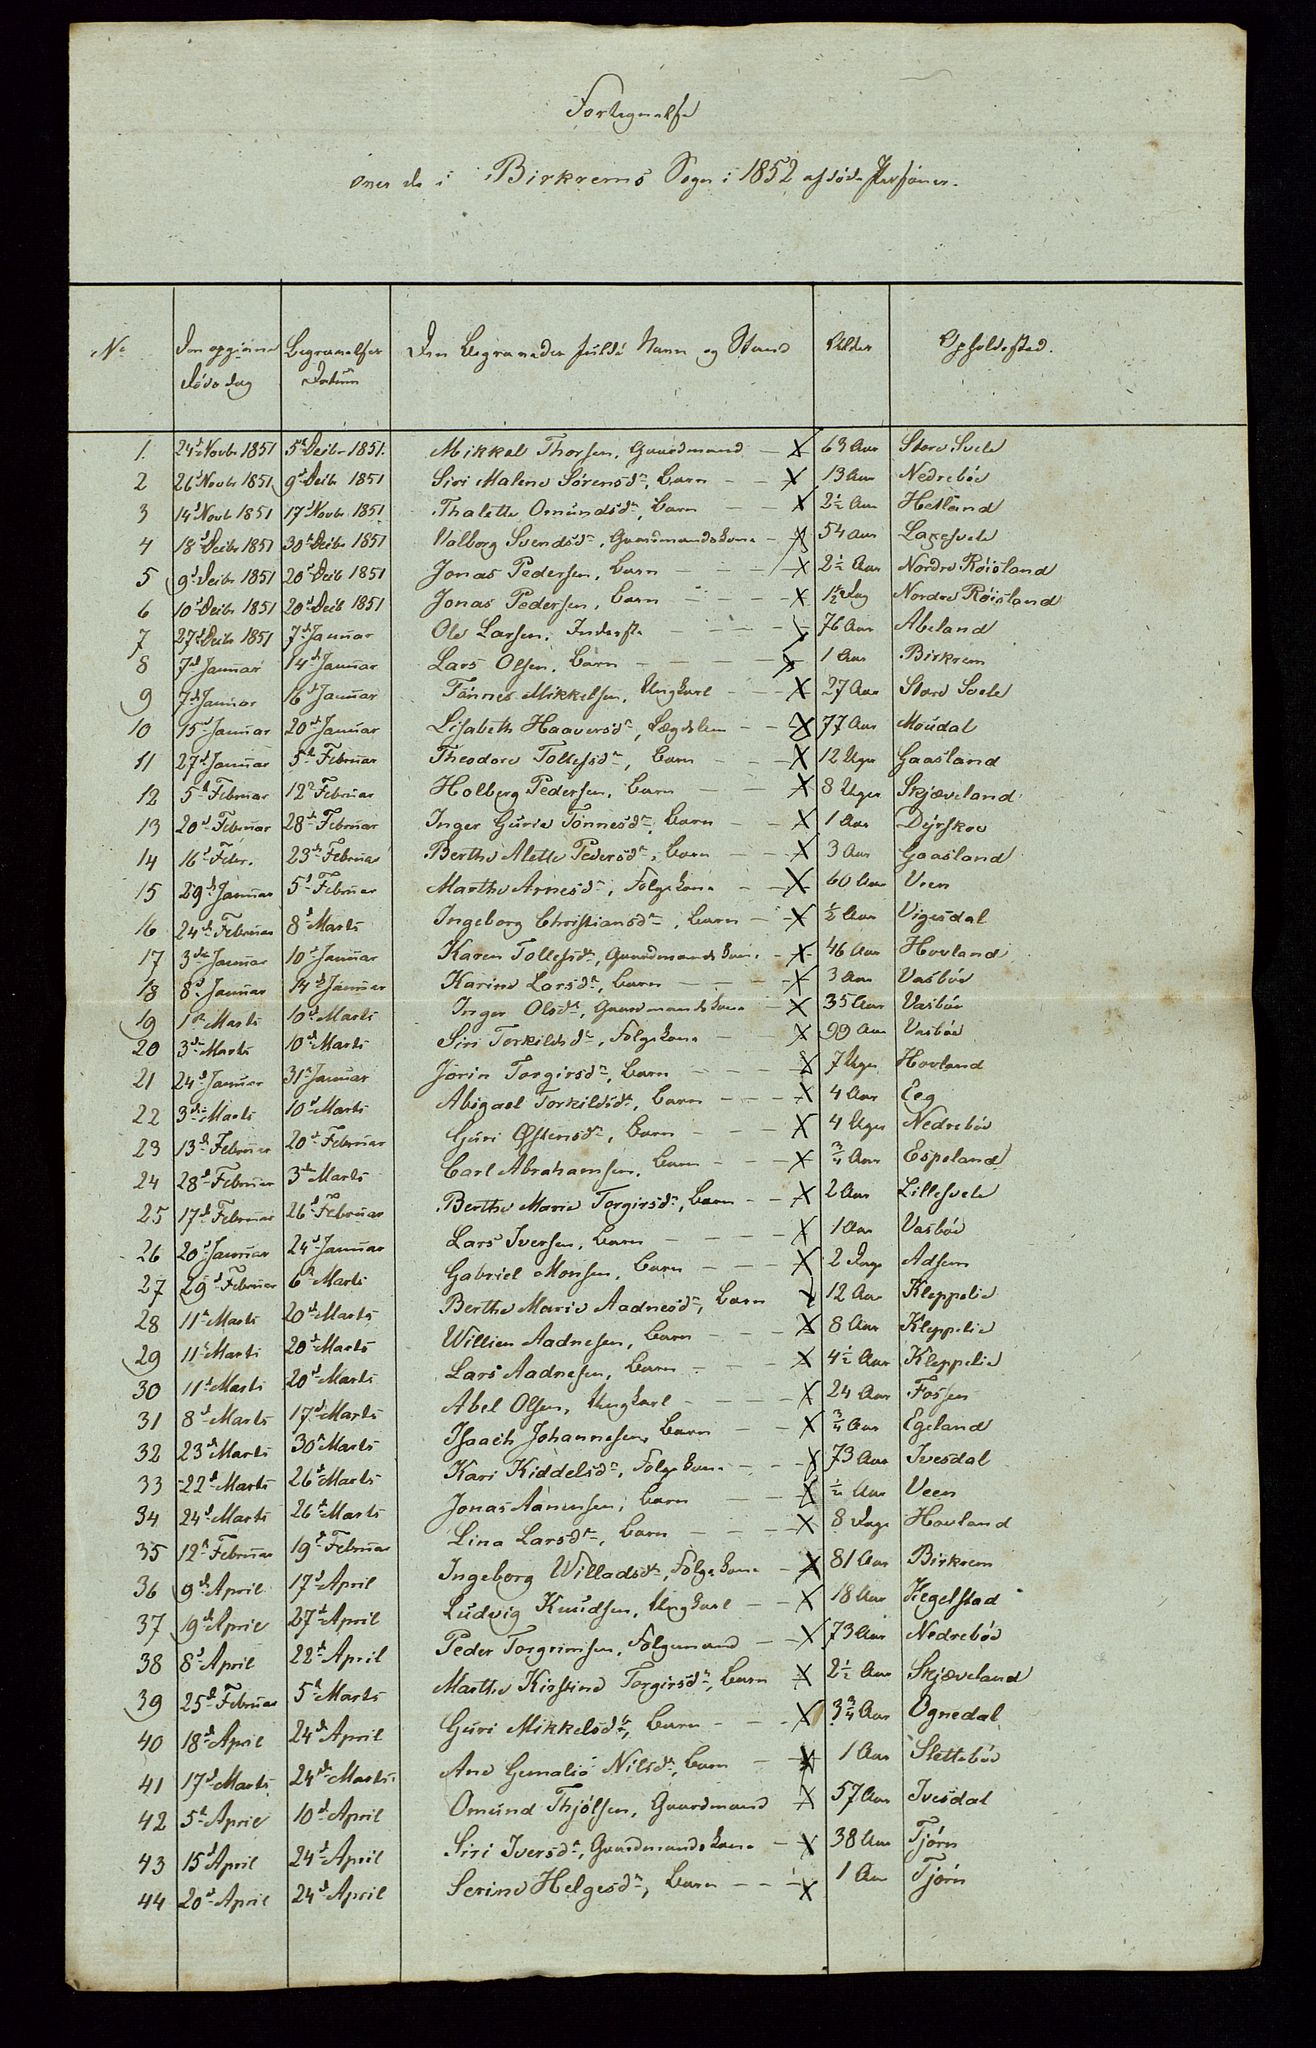 Fortegnelse
over de i Birkrems Sogn i 1852 afdøde Personer.
No | Den opgivne Døds dag | Begravelses Datum | Den Begravedes fulde Navn og Stand | Alder | Opholdssted.
1. 24d Novbr 1851 5te Decbr 1851. Mikkel Thorsen, Gaardmand - X 63 Aar Store Svele
2 26d Novbr 1851 9d Decbr 1851 Siri Malene Sørensdr, Barn - - X 13 Aar Nedrebøe
3 14d Novbr 1851 17d Novbr 1851 Thalette Omundsdr, Barn - - X 2½ Aar Hetland
4 18d Decbr 1851 30te Decbr 1851 Valborg Svendsdr, Gaardmandskone - X 54 Aar Lagesvele
5 9d Decbr 1851 20d Decbr 1851 Jonas Pedersen, Barn - - - X 2½ Aar Nordre Röisland
6 10d Decbr 1851 20d Decbr 1851 Jonas Pedersen, Barn - - - X 1½ Dag Nordre Röisland
7 27d Decbr 1851 7d Januar Ole Larsen, Inderste - - - X 76 Aar Abeland
8 7d Januar 14d Januar Lars Olsen, Barn - - - X 1 Aar Birkrem
9 7d Januar 16d Januar Tönnes Mikkelsen, Ungkarl - - X 27 Aar Store Svele
10 15d Januar 20d Januar Lisabeth Haaversdr, Lægdslem - - X 77 Aar Moudal
11 27d Januar 5te Februar Theodore Tollefsdr, Barn - - X 12 Uger Gaasland
12 5te Februar 12te Februar Holberg Pedersen, Barn - - X 8 Uger Skjæveland
13 20d Februar 28d Februar Inger Gurie Tönnesdr, Barn - X 1 Aar Dyrskoe
14 16d Febr. 23de Februar Berthe Alette Pedersdr, Barn - - X 3 Aar Gaasland
15 29d Januar 5d Februar Marthe Arnesdr, Folgekone - X 60 Aar Veen
16 24d Februar 8d Marts Ingeborg Christiansdr, Barn - X ½ Aar Vigesdal
17 3die Januar 10d Januar Karen Tollefsdr, Gaardmandskone - X 46 Aar Hovland
18 8d Januar 14d Januar Karine Larsdr, Barn - - - X 3 Aar Vasbøe
19 1te Marts 10d Marts Inger Olsdr, Gaardmandskone X 35 Aar Vasbøe
20 3die Marts 10d Marts Siri Torkildsdr, Folgekone - X 90 Aar Vasbøe
21 24d Januar 31te Januar Jörin Torgirsdr, Barn - - - X 7 Uger Hovland
22 3die Marts 10d Marts Abigael Torkildsdr, Barn - - - X 4 Aar Eeg
23 13de Februar 20d Februar Guri Østensdr, Barn - - - X 4 Uger Nedrebøe
24 28d Februar 3die Marts Carl Abrahamsen, Barn - - - X ¾ Aar Espeland
25 17d Februar 26d Februar Berthe Marie Torgirsdr, Barn - - X 2 Aar Lillesvele
26 20d Januar 24d Januar Lars Iversen, Barn - - - X 1 Aar Vasbøe
27 29d Februar 6te Marts Gabriel Monsen, Barn - - - X 2 Dage Adsem
28 11te Marts 20d Marts Berthe Marie Aadnesdr, Barn X 12 Aar Kleppelie
29 11te Marts 20d Marts Willien Aadnesen, Barn - - - X 8 Aar Kleppelie
30 11te Marts 20d Marts Lars Aadnesen, Barn - - - X 4½ Aar Kleppelie
31 8d Marts 17d Marts Abel Olsen, Ungkarl - - - X 24 Aar Fossen
32 23de Marts 30te Marts Isaach Johannesen, Barn - - X ¾ Aar Egeland
33 22d Marts 26d Marts Kari Kiddelsdr, Folgekone - - X 73 Aar Ivesdal
34 24d Marts 26d Marts Jonas Aanensen, Barn - - X ½ Aar Veen
35 12te Februar 19d Februar Lina Larsdr, Barn - - - X 8 Dage Hovland
36 9d April 17d April Ingeborg Willadsdr, Folgekone - X 81 Aar Birkrem
37 9d April 27d April Ludvig Knudsen, Ungkarl - - X 18 Aar Hegelstad
38 8d April 22d April Peder Torgrimsen, Folgemand - - X 73 Aar Nedrebøe
39 25d Februar 5te Marts Marthe Kirstine Torgirsdr, Barn X 2½ Aar Skjæveland
40 18d April 24d April Guri Mikkelsdr, Barn - - - X 3¾ Aar Ognedal
41 17d Marts 24de Marts Ane Gunalie Nilsdr, Barn - X 1 Aar Slettebøe
42 5te April 10d April Omund Thjölsen, Gaardmand X 57 Aar Ivesdal
43 15d April 24d April Siri Iversdr, Gaardmandskone - X 38 Aar Tjörn
44 20d April 24d April Serine Helgesdr, Barn - - - X 1 Aar Tjörn